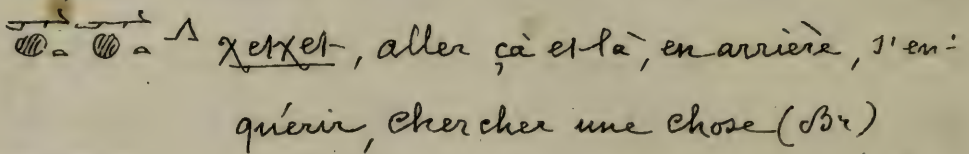 χetχet, aller çà et là, en arrière, s'en-
quérir, chercher une chose (Br)